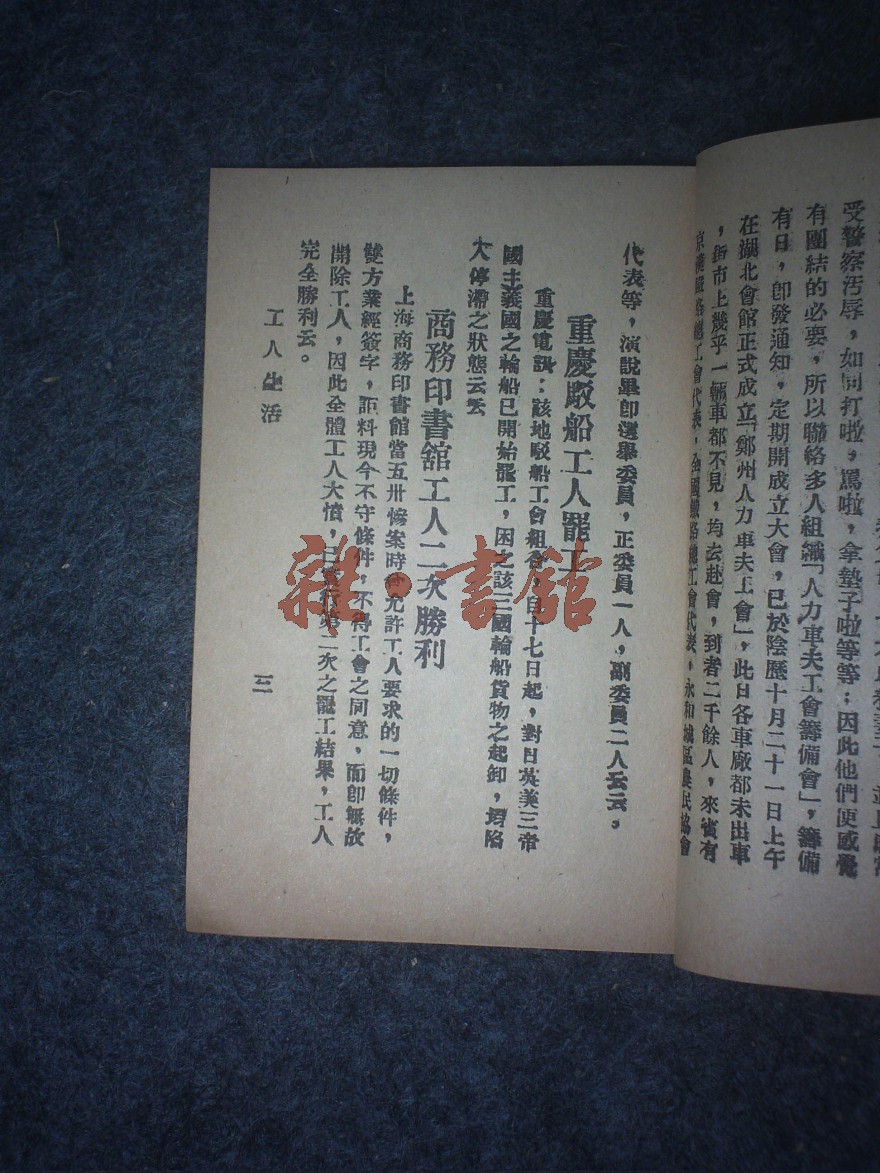 受警察汚辱，如同打啦，駡啦，拿墊子啦等等：因此他們便感覺
有團結的必要，所以聯絡多人組織「人力車夫工會籌備會」，籌備
有日，卽發通知，定期開成立大會，已於陰歷十月二十一日上午
在湖北會館正式成立「鄭州人力車夫工會」，此日各車廠都未出車
，街市上幾乎一輛車都不見，均去赴會，到者二千餘人，來賓有
京漢鐵路總工會代表，全國鐵路總工會代表，永和城區農民協會
代表等，演說畢卽選舉委員，正委員一人，副委員二人云云。
重慶駁船工人罷工
重慶電訊：該地駁船工會組合，自十七日起，對日英美三帝
國主義國之輪船已開始罷工，因之該三國輪船貨物之起卸，均陷
大停滯之狀態云云
商務印書舘工人二次勝利
上海商務印書館當五卅慘案時曾允許工人要求的一切條件，
雙方業經簽字，詎料現今不守條件，不得工會之同意，而卽無故
開除工人，因此全體工人大憤，已第二次之罷工結果，工人
完全勝利云。
工人生活
三
雜·書舘